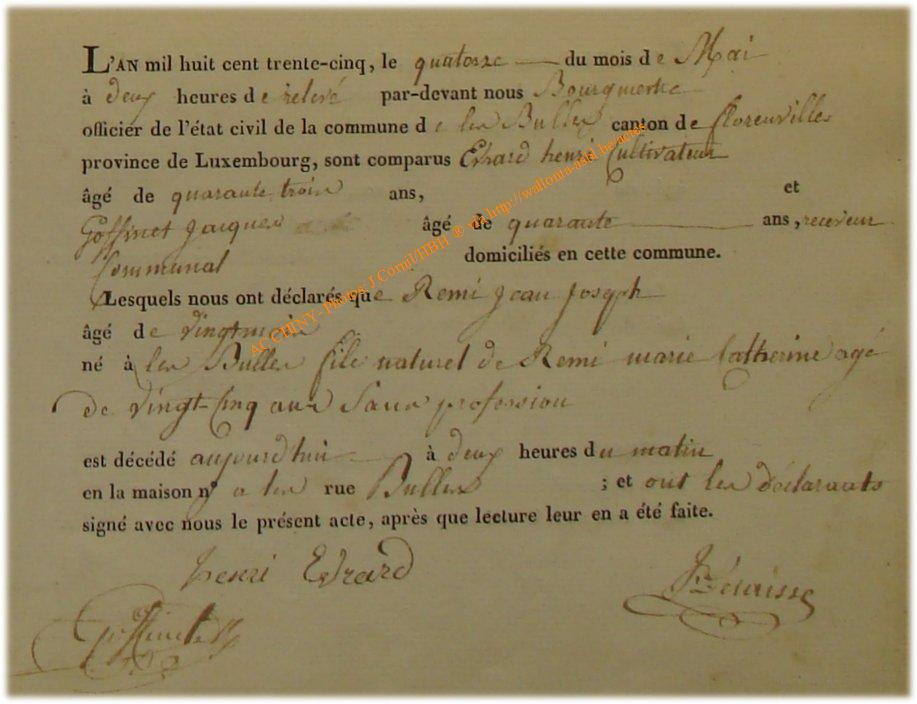 L'AN mil huit cent trente-cinq, le quatorze du mois de Mai
à deux heures de relevé par-devant nous Bourgmestre
officier de l'état civil de la commune de les Bulles canton de florenville
province de Luxembourg, sont comparus Evrard henri Cultivateur
âgé de quarante trois ans, et
Goffinet Jacques âgé de quarante ans, receveur
Communal domiciliés en cette commune.
Lesquels nous ont déclarés que Remi Jean Joseph
âgé de vingt mois
né à les Bulles fils naturel de Remi marie Catherine agé
de vingt-Cinq ans Sans profession
est décédé aujourd'hui à deux heures du matin
en la maison n° a les rue Bulles ; et ont les déclarants
signé avec nous le présent acte, après que lecture leur en a été faite.
henri Evrard
ACCHINY - Photos J Cornil/HBH @ http://wallonia-asbl.be/actes